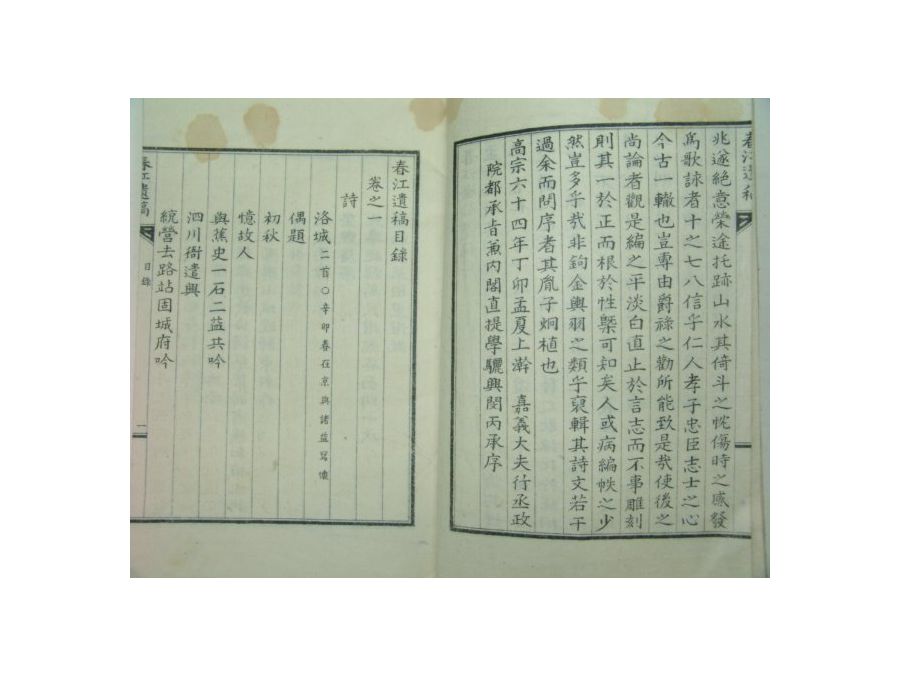 春江遺稿
兆遂絶意榮途托跡山水其倚斗之忱傷時之感發
爲歌詠者十之七八信乎仁人孝子忠臣志士之心
今古一轍也豈專由爵祿之勸所能致是哉使後之
尚論者觀是編之平淡白直止於言志而不事雕刻
則其一於正而根於性槩可知矣人或病編帙之少
然豈多乎哉非鉤金輿羽之類乎裒輯其詩文若干
過余而問序者其胤子炯植也
高宗六十四年丁卯孟夏上澣 嘉義大夫行丞政
院都承旨兼內閣直提學驪興閔丙承序
春江遺稿目錄
卷之一
詩
洛城二首○辛卯春在京與諸益寫懷
偶題
初秋
憶故人
與蕉史一石二益共吟
泗川衙遣興
統營去路站固城府吟
春江遺稿
目錄
一